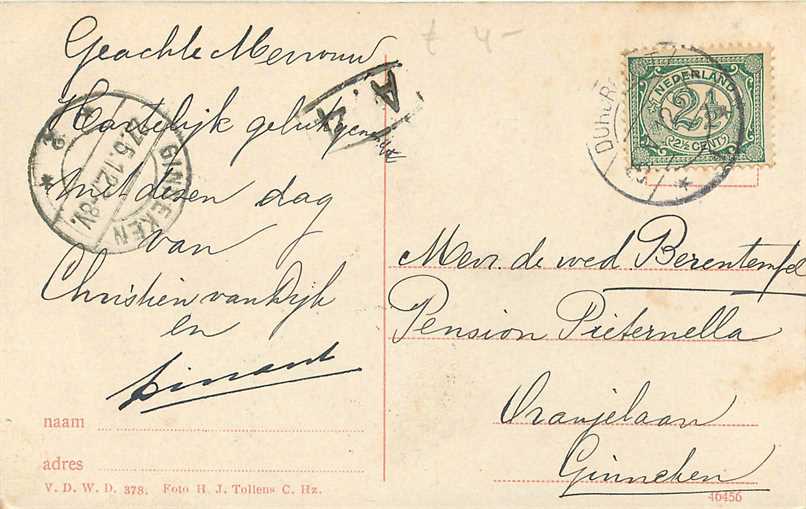 Geachte Mevrouw
Hartelijk gelukgewenst
met dezen dag
van
Christien van Dijk
en
naam
adres
V. D. W. D. 378. Foto H. J. Tollens C. Hz.
£ 4-
A.
GINNEKEN
27.5.12. -8V.
NEDERLAND
2½
2½ CENT
Mevr. de wed Berentemfel
Pension Pieternella
Oranjelaan
Ginneken
46456